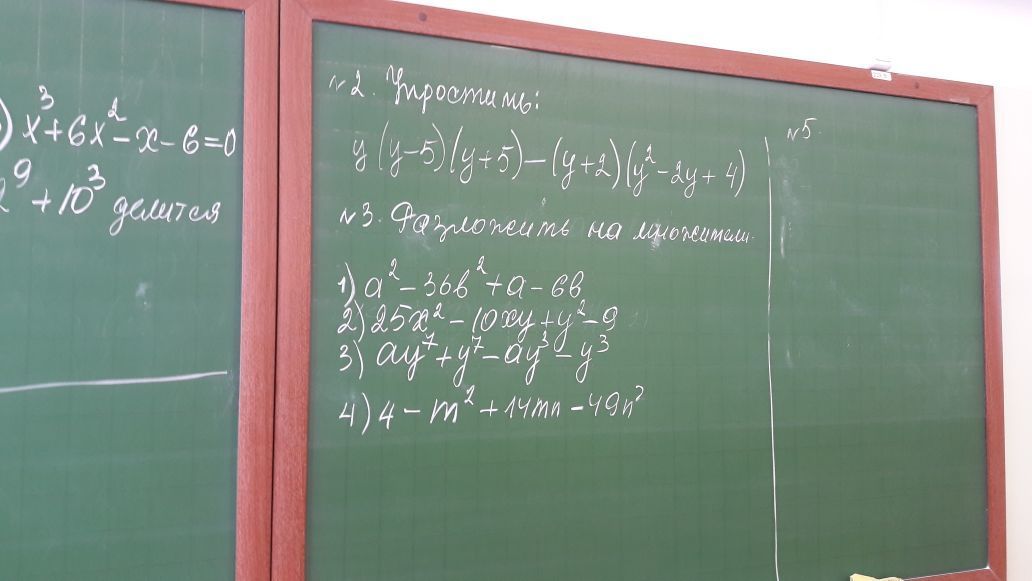 x³+6x²-x-6=0
2⁹+10³ делится
№2. Упростить:
y(y-5)(y+5)-(y+2)(y²-2y+4)
№3. Разложить на множители.
1) a²-36в²+a-6в
2) 25x²-10xy+y²-9
3) ay⁷+y⁷-ay³-y³
4) 4-m²+14mn-49n²
№5.